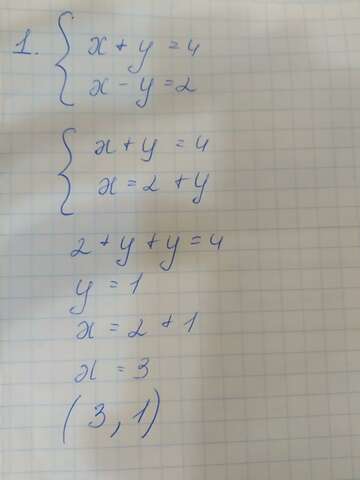 1. { x + y = 4
x - y = 2
{ x + y = 4
x = 2 + y
2 + y + y = 4
y = 1
x = 2 + 1
x = 3
(3, 1)